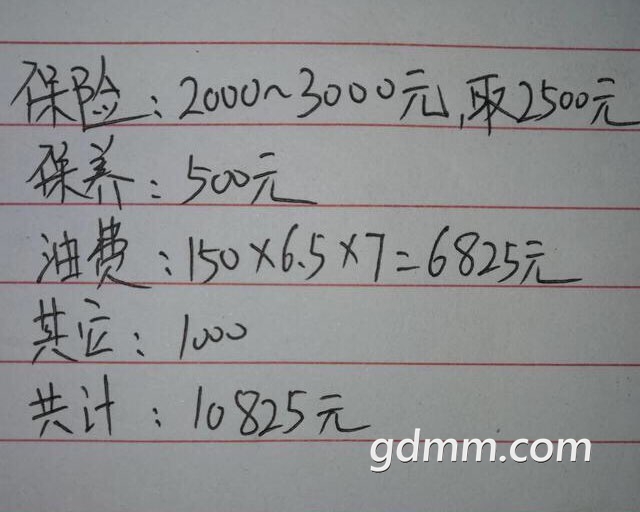 保险：2000~3000元,取2500元
保养：500元
油费：150×6.5×7=6825元
其它：1000
共计：10825元
gdmm.com